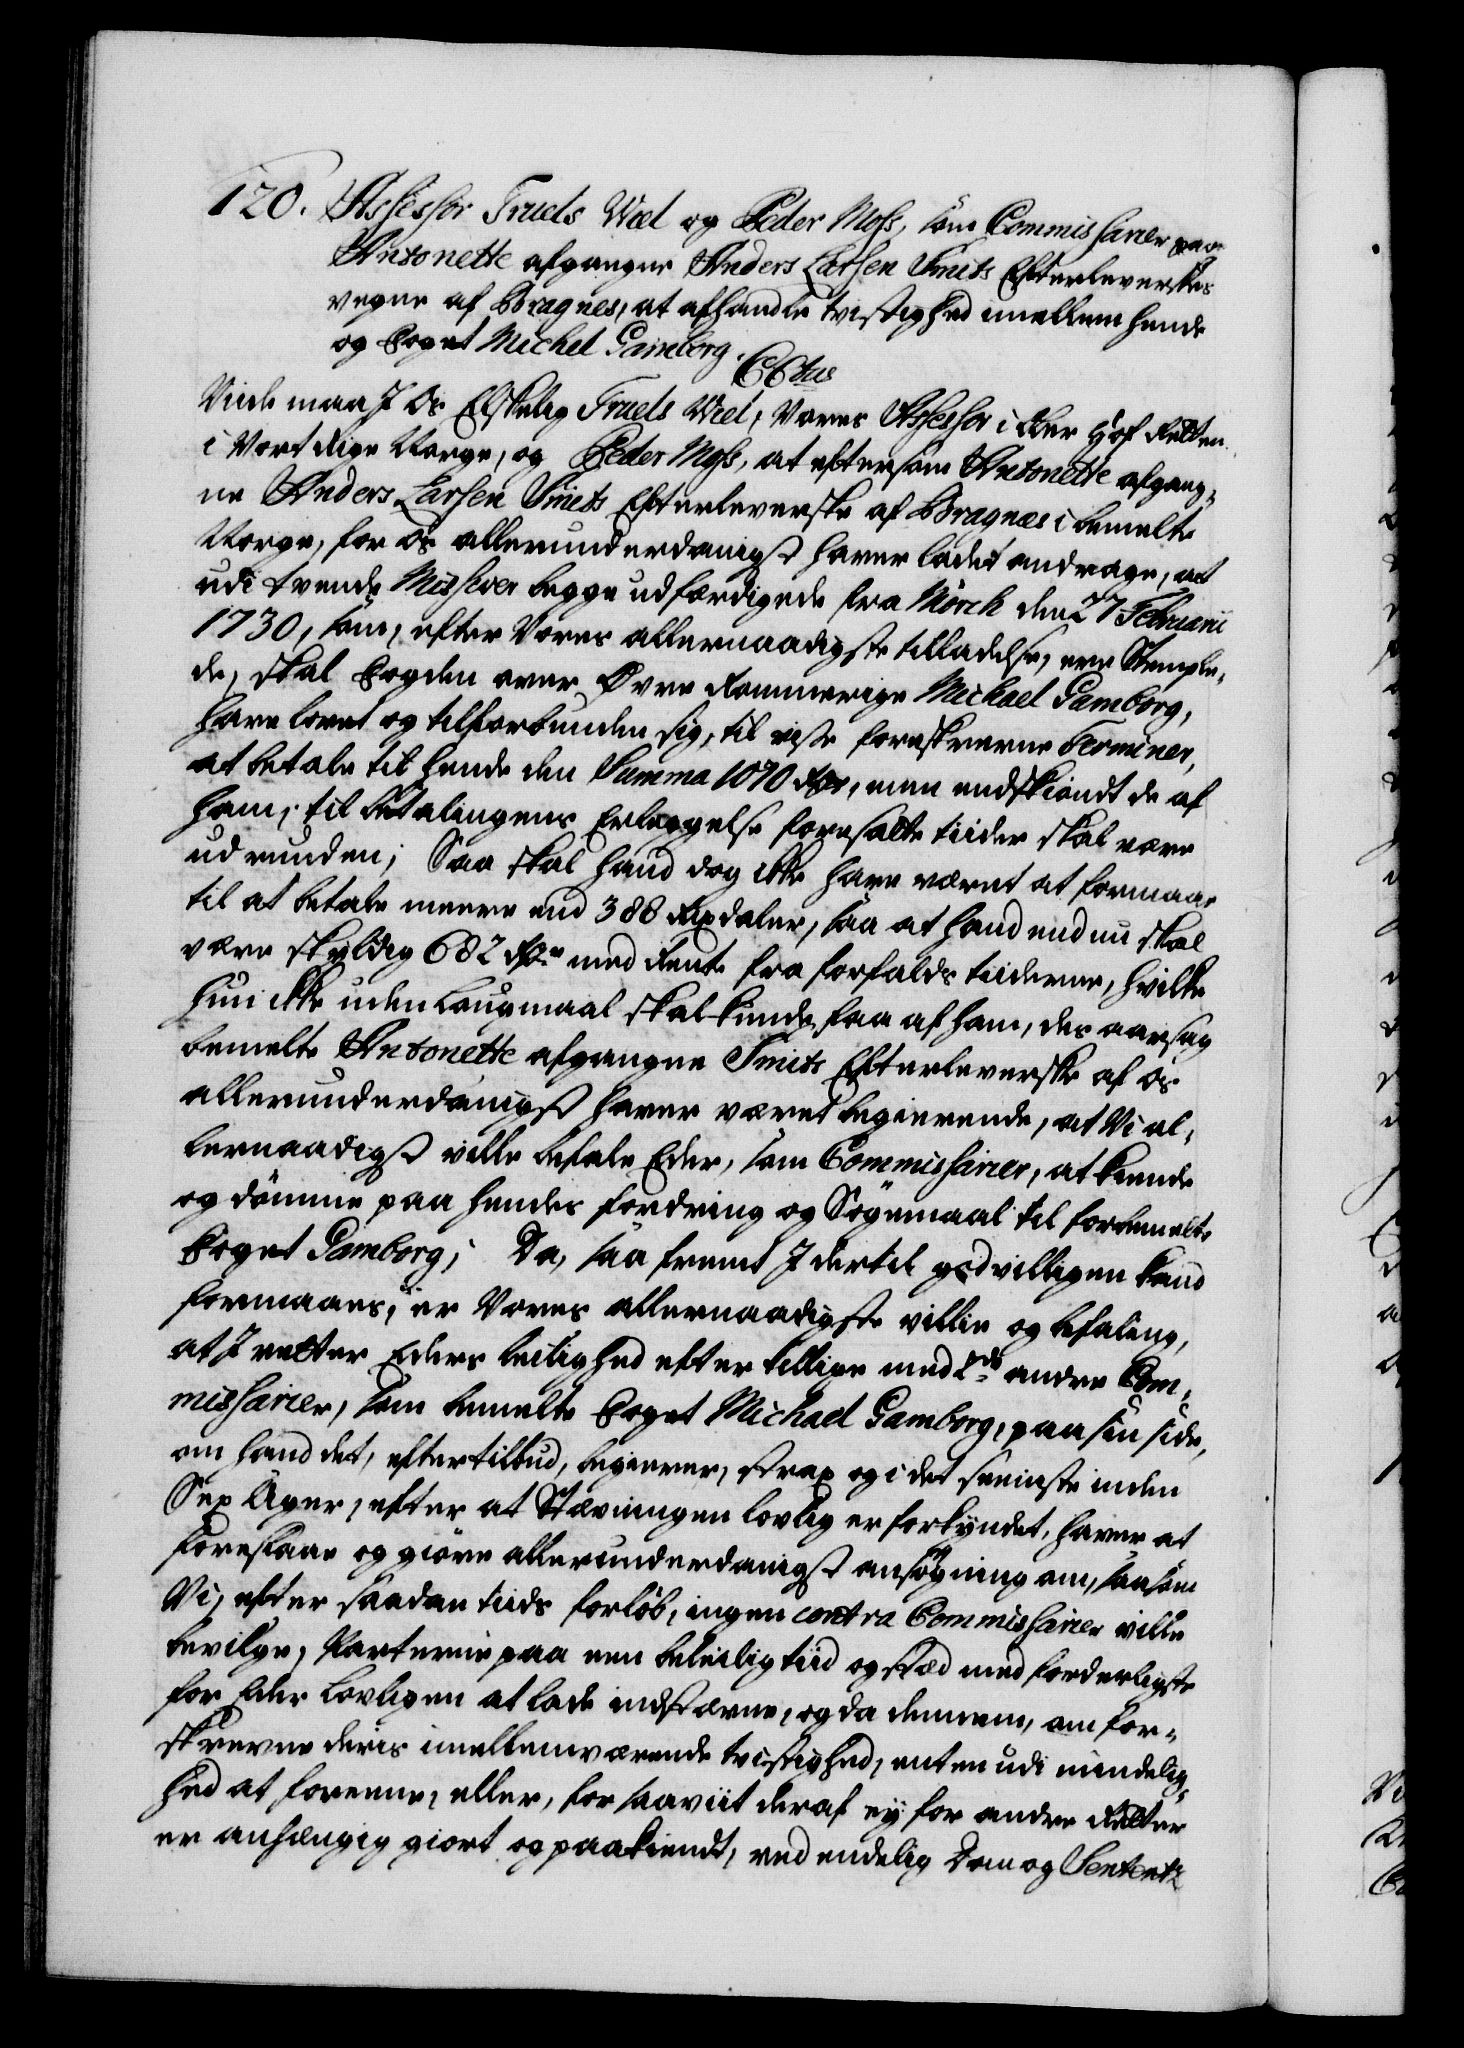 120. Assessor Truels Wiel og Peder Moss, som Commissarier paa
Antonette afgangne Anders Larsen Smits Efterleverskes
vegne af Bragnes, at afhandle tvistighed imellem hende
og Foget Michel Gamborg.
C6tus
Viide maa I Os Elskelig Truels Wiel, Vores Assessor i Ober Hof Retten
i Vort Rige Norge, og Peder Moss, at eftersom Antonette afgang,
ne Anders Larsen Smits Efterleverske af Bragnæs i bemelte
Norge, for Os allerunderdanigst haver ladet andrage, at
udi tvende Missiver begge udfærdigede fra Mörch den 27 Februarii
1730, som, efter Vores allernaadigste tilladelse, ere Stemple,
de, skal Fogden over Øvre Rommerige Michael Gamborg,
have lovet og tilforbunden sig, til visse foreskrevne Terminer,
at betale til hende den Summa 1070 Rdr, men endskiøndt de af
ham, til betalingens Erlæggelse foresatte tiider skal være
udrunden; Saa skal hand dog ikke have været at formaae
til at betale meere end 388 Rixdaler, saa at hand endnu skal
være skyldig 682 Rdr med Rente fra forfalds tiiderne, hvilke
hun ikke uden Laugmaal skal kunde faa af ham, des aarsag
bemelte Antonette afgangne Smits Efterleverske af Os
allerunderdanigst haver været begierende, at Vi al,
lernaadigst ville befale Eder, som Commissarier, at kiende
og dömme paa hendes fordring og Sögemaal til forbemelte
Foget Gamborg; Da, saa fremt I dertil godvilligen kand
formaaes, er Vores allernaadigste villie og befaling,
at I retter Eders leilighed efter tillige med 2de andre Com,
missarier, som bemelte Foget Michael Gamborg, paa sin side,
om hand det, efter tilbud, begierer, strax og i det seeniste inden
Sex Uger, efter at Stævningen lovlig er forkyndet, haver at
foreslaae og giøre allerunderdanigst ansøgning om, saasom
Vi, efter saadan tiids forløb, ingen contra Commissarier ville
bevilge, Parterne paa een beleilig tiid og stæd med forderligste
for Eder Lovligen at lade indstævne, og da dennem, om for,
skrevne deris imellemværende tvistighed, enten udi mindelig,
hed at foreene, eller, for saaviit deraf ej for andre Retter
er anhængig giort og paakiendt, ved endelig Dom og Sententz